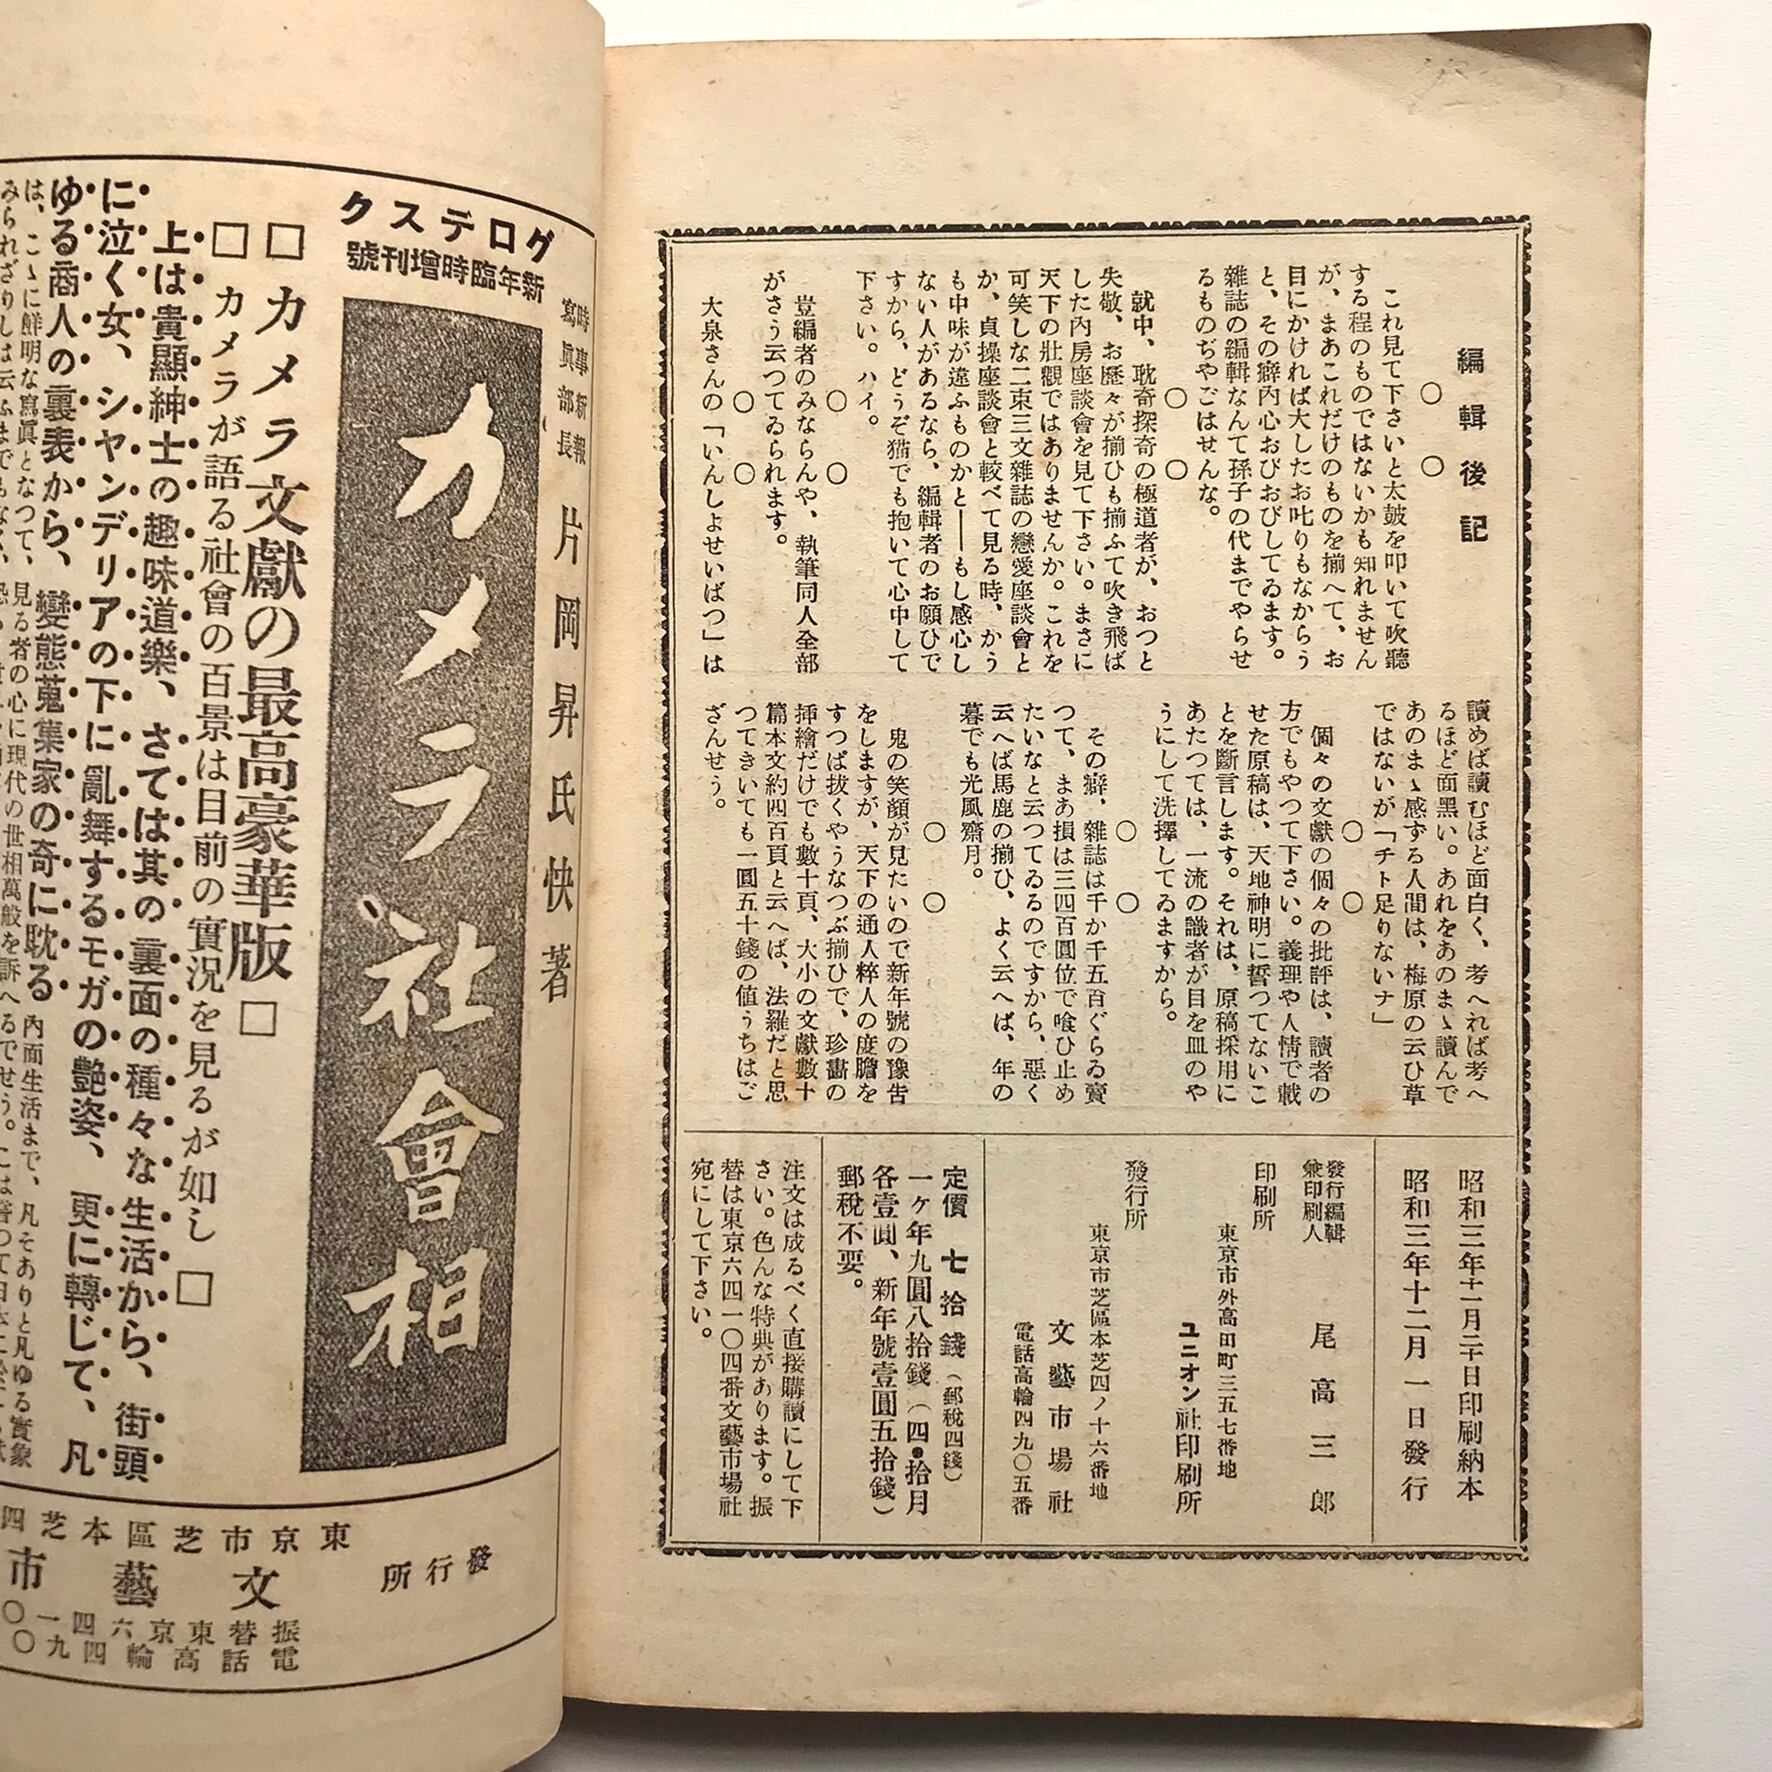 編輯後記
○　　○
これ見て下さいと太鼓を叩いて吹聽
する程のものではないかも知れません
が、まあこれだけのものを揃へて、お
目にかければ大したお叱りもなからう
と、その癖內心おびおびしてゐます。
雜誌の編輯なんて孫子の代までやらせ
るものぢやごはせんな。
○　　○
就中、耽奇探奇の極道者が、おつと
失敬、お歷々が揃ひも揃ふて吹き飛ば
した內房座談會を見て下さい。まさに
天下の壯觀ではありませんか。これを
可笑しな二束三文雜誌の戀愛座談會と
か、貞操座談會と較べて見る時、かう
も中味が違ふものかと――もし感心し
ない人があるなら、編輯者のお願ひで
すから、どうぞ猫でも抱いて心中して
下さい。ハイ。
○　　○
豈編者のみならんや、執筆同人全部
がさう云つてゐられます。
○　　○
大泉さんの「いんしよせいばつ」は
讀めば讀むほど面白く、考へれば考へ
るほど面黑い。あれをあのまゝ讀んで
あのまゝ感ずる人間は、梅原の云ひ草
ではないが「チト足りないナ」
○　　○
個々の文獻の個々の批評は、讀者の
方でもやつて下さい。義理や人情で載
せた原稿は、天地神明に誓つてないこ
とを斷言します。それは、原稿採用に
あたつては、一流の識者が目を皿のや
うにして洗擇してゐますから。
○　　○
その癖、雜誌は千か千五百ぐらゐ賣
つて、まあ損は三四百圓位で喰ひ止め
たいなと云つてるるのですから、惡く
云へば馬鹿の揃ひ、よく云へば、年の
暮でも光風齋月。
○　　○
鬼の笑顏が見たいので新年號の豫告
をしますが、天下の通人粹人の度膽を
すつぱ拔くやうなつぶ揃ひで、珍畵の
挿繪だけでも數十頁、大小の文獻數十
篇本文約四百頁と云へば、法羅だと思
つてきいても一圓五十錢の値うちはご
ざんせう。
昭和三年十一月三十日印刷納本
昭和三年十二月一日發行
發行編輯
兼印刷人
尾高三郎
印刷所
東京市外高田町三五七番地
ユニオン社印刷所
發行所
東京市芝區本芝四ノ十六番地
文藝市場社
電話高輪四九〇五番
定價　七拾錢（郵稅四錢）
一ヶ年九圓八拾錢（四・拾月
各壹圓、新年號壹圓五拾錢）
郵稅不要。
注文は成るべく直接購讀にして下
さい。色んな特典があります。振
替は東京六四一〇四番文藝市場社
宛にして下さい。
グロテスク
新年臨時增刊號
時事新報
寫眞部長
片岡昇氏快著
カメラ社會相
□カメラ文獻の最高豪華版□
□カメラが語る社會の百景は目前の實況を見るが如し□
上は貴顯紳士の趣味道樂、さては其の裏面の種々な生活から、街頭
に泣く女、シヤンデリアの下に亂舞するモガの艶姿、更に轉じて、凡
ゆる商人の裏表から、變態蒐集家の奇に耽る內面生活まで、凡そありと凡ゆる實象
は、こゝに鮮明な寫眞となつて、見る者の心に現代の世相萬般を訴へるでせう。
發行所
東京市芝區本芝四
文藝市
振替東京六四一〇
電話高輪四九〇